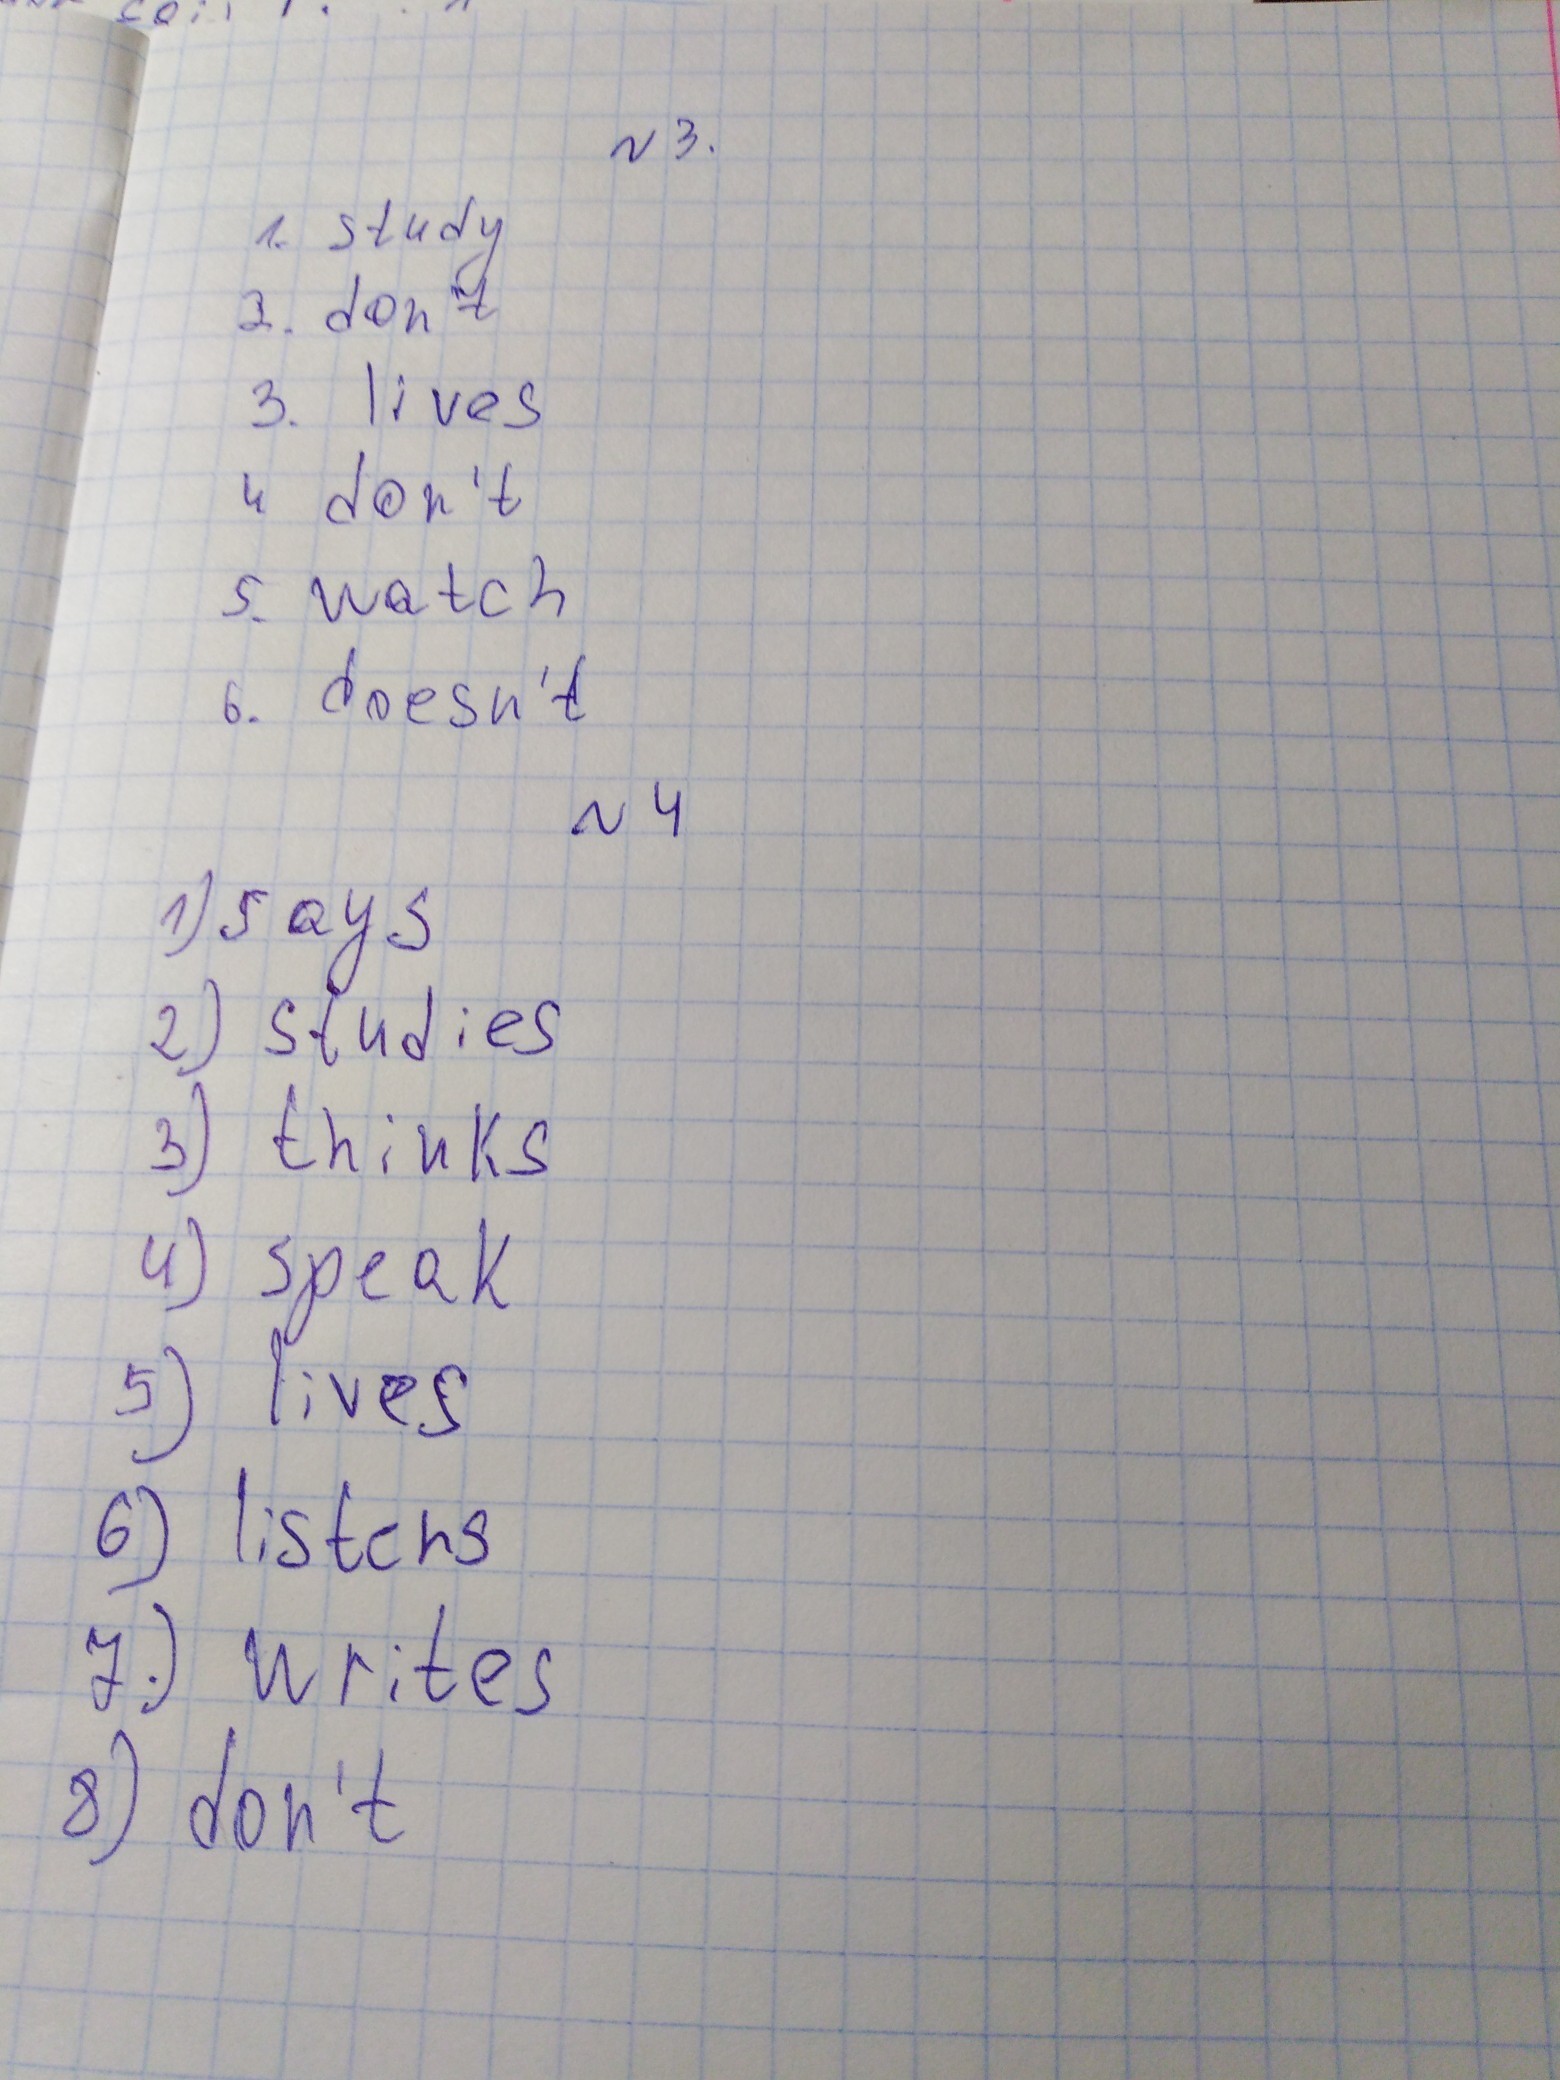 N 3.
1. study
2. don't
3. lives
4 don't
5. watch
6. doesn't
N 4
1) says
2) studies
3) thinks
4) speak
5) lives
6) listens
7.) writes
8) don't